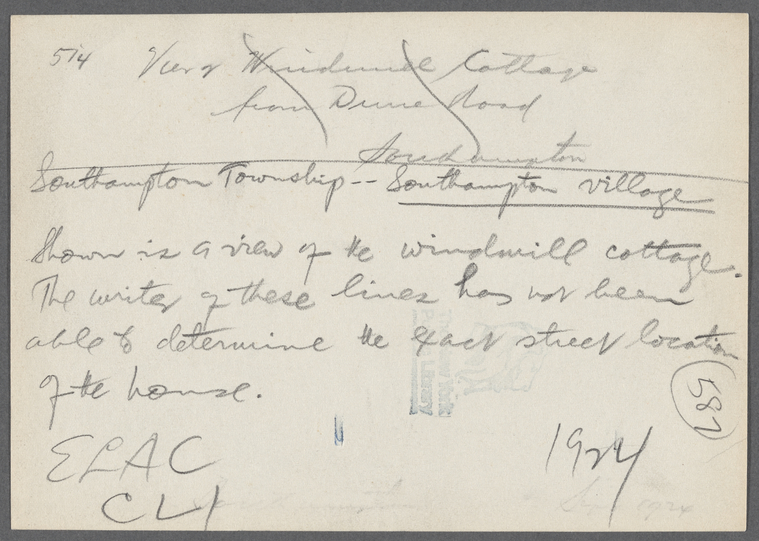 574 View of Windmill Cottage
from Dune Road
Southampton
Southampton Township -- Southampton Village
Shown is a view of the windmill cottage.
The writer of these lines has not been
able to determine the exact street location
of the house.
587
ELAC
1924
CLI